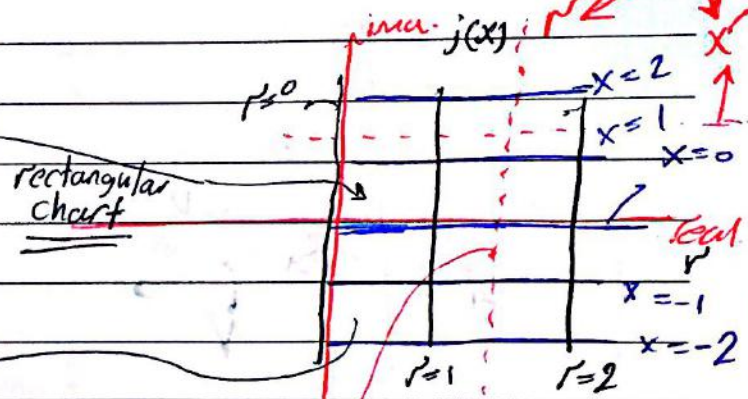 imu. j(x) r
x
x = 2
r = 0
x = 1
x = 0
rectangular
chart
real
r
x = -1
x = -2
r = 1 r = 2